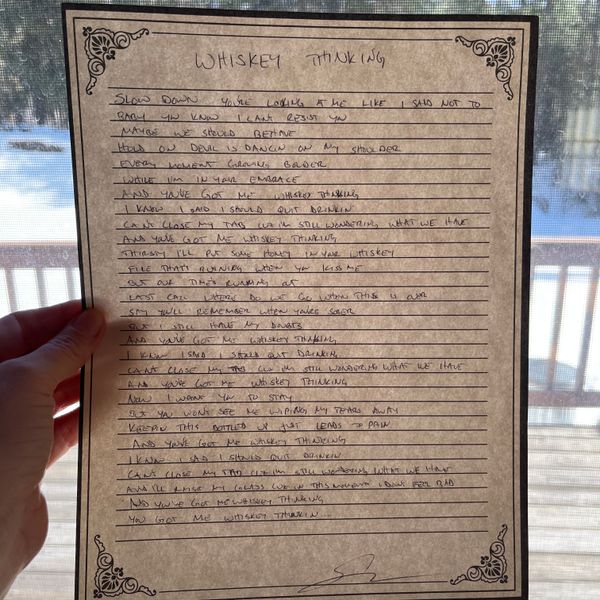 WHISKEY THINKING
SLOW DOWN YOU'RE LOOKING AT ME LIKE I SAID NOT TO
BABY YOU KNOW I CAN'T RESIST YOU
MAYBE WE SHOULD BEHAVE
HOLD ON DEVIL IS DANCIN ON MY SHOULDER
EVERY MOMENT GROWING BOLDER
WHILE I'M IN YOUR EMBRACE
AND YOU'VE GOT ME WHISKEY THINKING
I KNOW I SAID I SHOULD QUIT DRINKIN
CAN'T CLOSE MY TAB CUZ I'M STILL WONDERING WHAT WE HAVE
AND YOU'VE GOT ME WHISKEY THINKING
THIRSTY I'LL PUT SOME HONEY IN YOUR WHISKEY
FIRE THAT'S BURNING WHEN YOU KISS ME
BUT OUR TIME'S RUNNING OUT
LAST CALL WHERE DO WE GO WHEN THIS IS OVER
SAY YOU'LL REMEMBER WHEN YOU'RE SOBER
BUT I STILL HAVE MY DOUBTS
AND YOU'VE GOT ME WHISKEY THINKING
I KNOW I SAID I SHOULD QUIT DRINKIN
CAN'T CLOSE MY TAB CUZ I'M STILL WONDERING WHAT WE HAVE
AND YOU'VE GOT ME WHISKEY THINKING
NOW I WANT YOU TO STAY
BUT YOU WON'T SEE ME WIPING MY TEARS AWAY
KEEPIN THIS BOTTLED UP JUST LEADS TO PAIN
AND YOU'VE GOT ME WHISKEY THINKING
I KNOW I SAID I SHOULD QUIT DRINKIN
CAN'T CLOSE MY TAB CUZ I'M STILL WONDERING WHAT WE HAVE
AND I'LL RAISE MY GLASS CUZ IN THIS MOMENT I DON'T FEEL BAD
AND YOU'VE GOT ME WHISKEY THINKING
YOU GOT ME WHISKEY THINKIN...